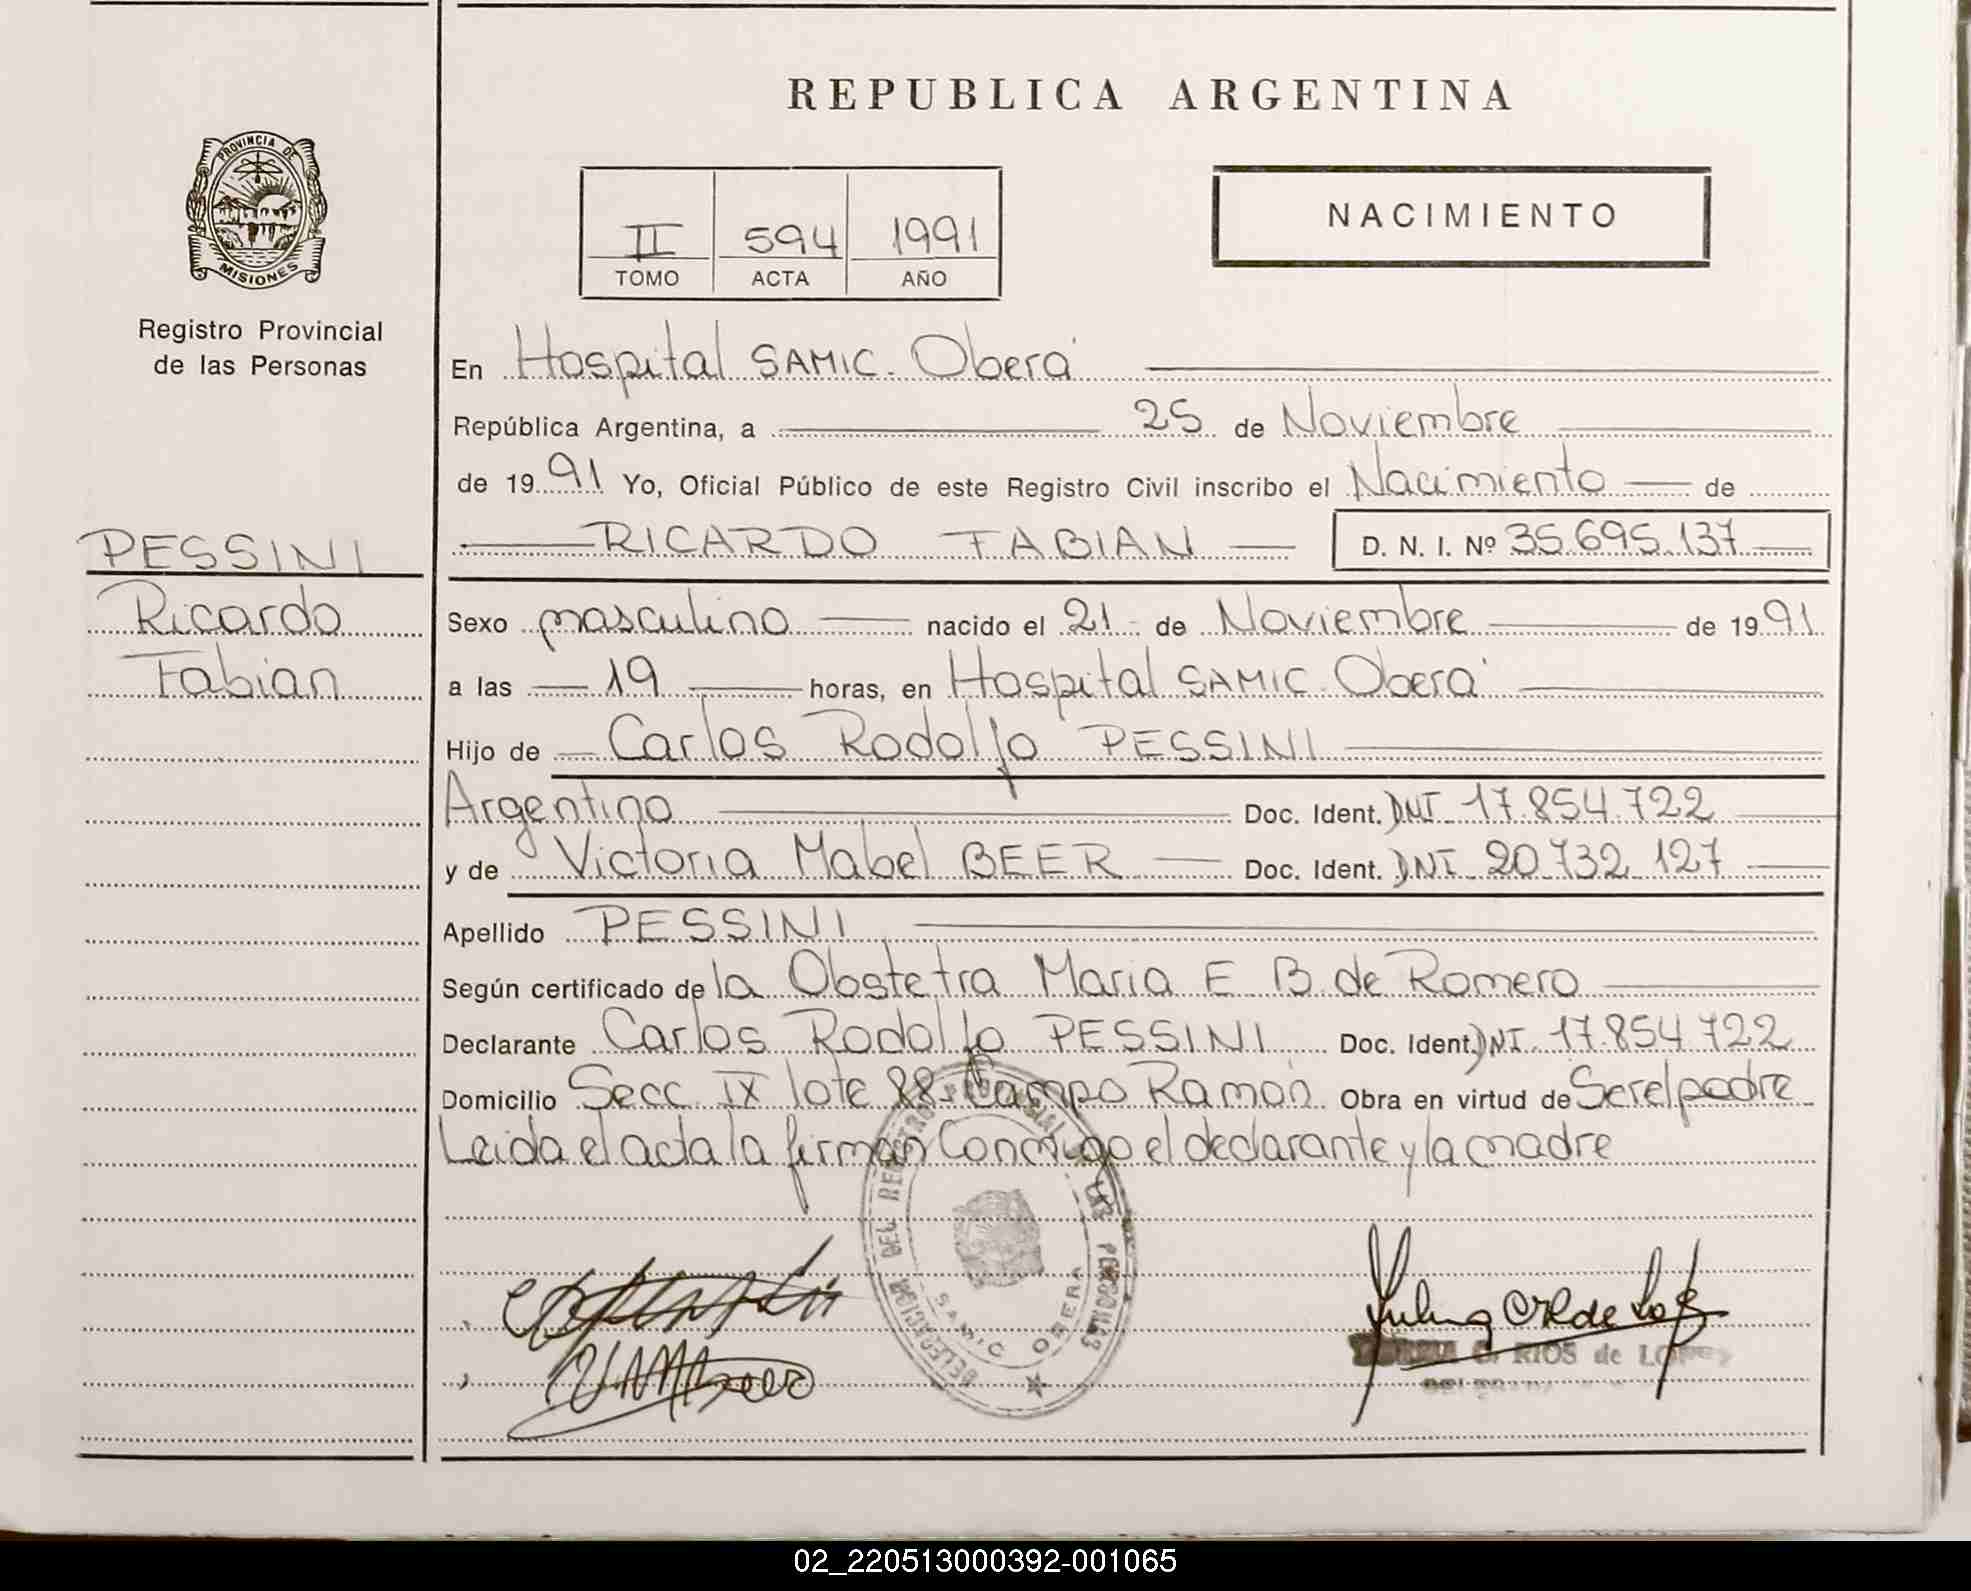 REPUBLICA ARGENTINA
PROVINCIA DE
MISIONES
Registro Provincial
de las Personas
II 594 1991
TOMO ACTA AÑO
NACIMIENTO
En Hospital SAMIC. Oberá
República Argentina, a 25 de Noviembre
de 1991 Yo, Oficial Público de este Registro Civil inscribo el Nacimiento de
RICARDO FABIAN D. N. I. Nº 35.695.137
PESSINI
Ricardo
Fabian
Sexo masculino nacido el 21 de Noviembre de 1991
a las 19 horas, en Hospital SAMIC. Oberá
Hijo de Carlos Rodolfo PESSINI
Argentino Doc. Ident. DNI 17.854.722
y de Victoria Mabel BEER Doc. Ident. DNI 20.732.127
Apellido PESSINI
Según certificado de la Obstetra Maria E B. de Romero
Declarante Carlos Rodolfo PESSINI Doc. Ident. DNI. 17.854.722
Domicilio Secc. IX lote 88- Campo Ramón Obra en virtud de Ser el padre
Leida el acta la firman Conmigo el declarante y la madre
DELEGACION DEL REGISTRO PROVINCIAL DE LAS PERSONAS
SAMIC OBERA
C. RIOS de LOPEZ
02_220513000392-001065